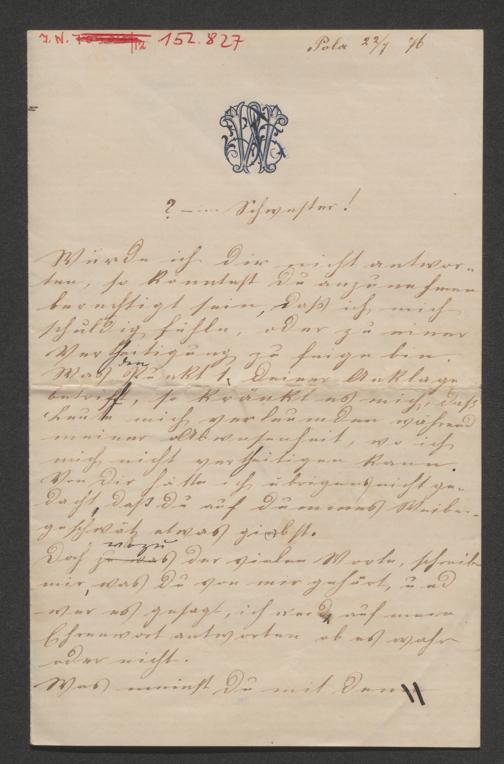 J. N. 152.827
Pola 22/7 76
? — ... Schwester!
Würde ich Dir nicht antwor-
ten, so könntest Du anzunehmen
berechtigt sein, daß ich mich
schuldig fühle, oder zu einer
Vertheitigung zu feige bin.
Was den Punkt 1, Deiner Anklage
betrifft, so kränkt es mich, daß
Leute mich verleumden während
meiner Abwesenheit, wo ich
mich nicht vertheitigen kann.
Von Dir hätte ich übrigens nicht ge-
dacht, daß du auf dummes Weiber-
geschwätz etwas giebst.
Doch wozu der vielen Worte, schreibe
mir, was Du von mir gehört, und
wer es gesagt, ich werd auf mein
Ehrenwort antworten ob es wahr
oder nicht.
Was meinst Du mit den